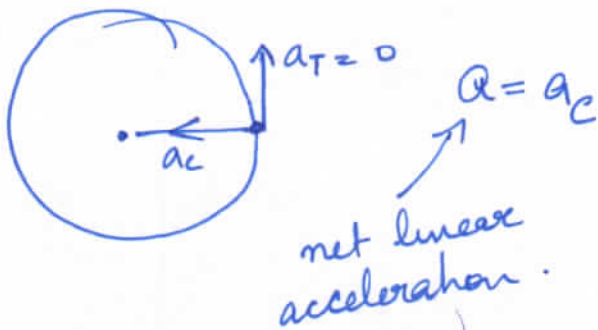 a_T = 0
a = a_c
a_c
net linear
acceleration.